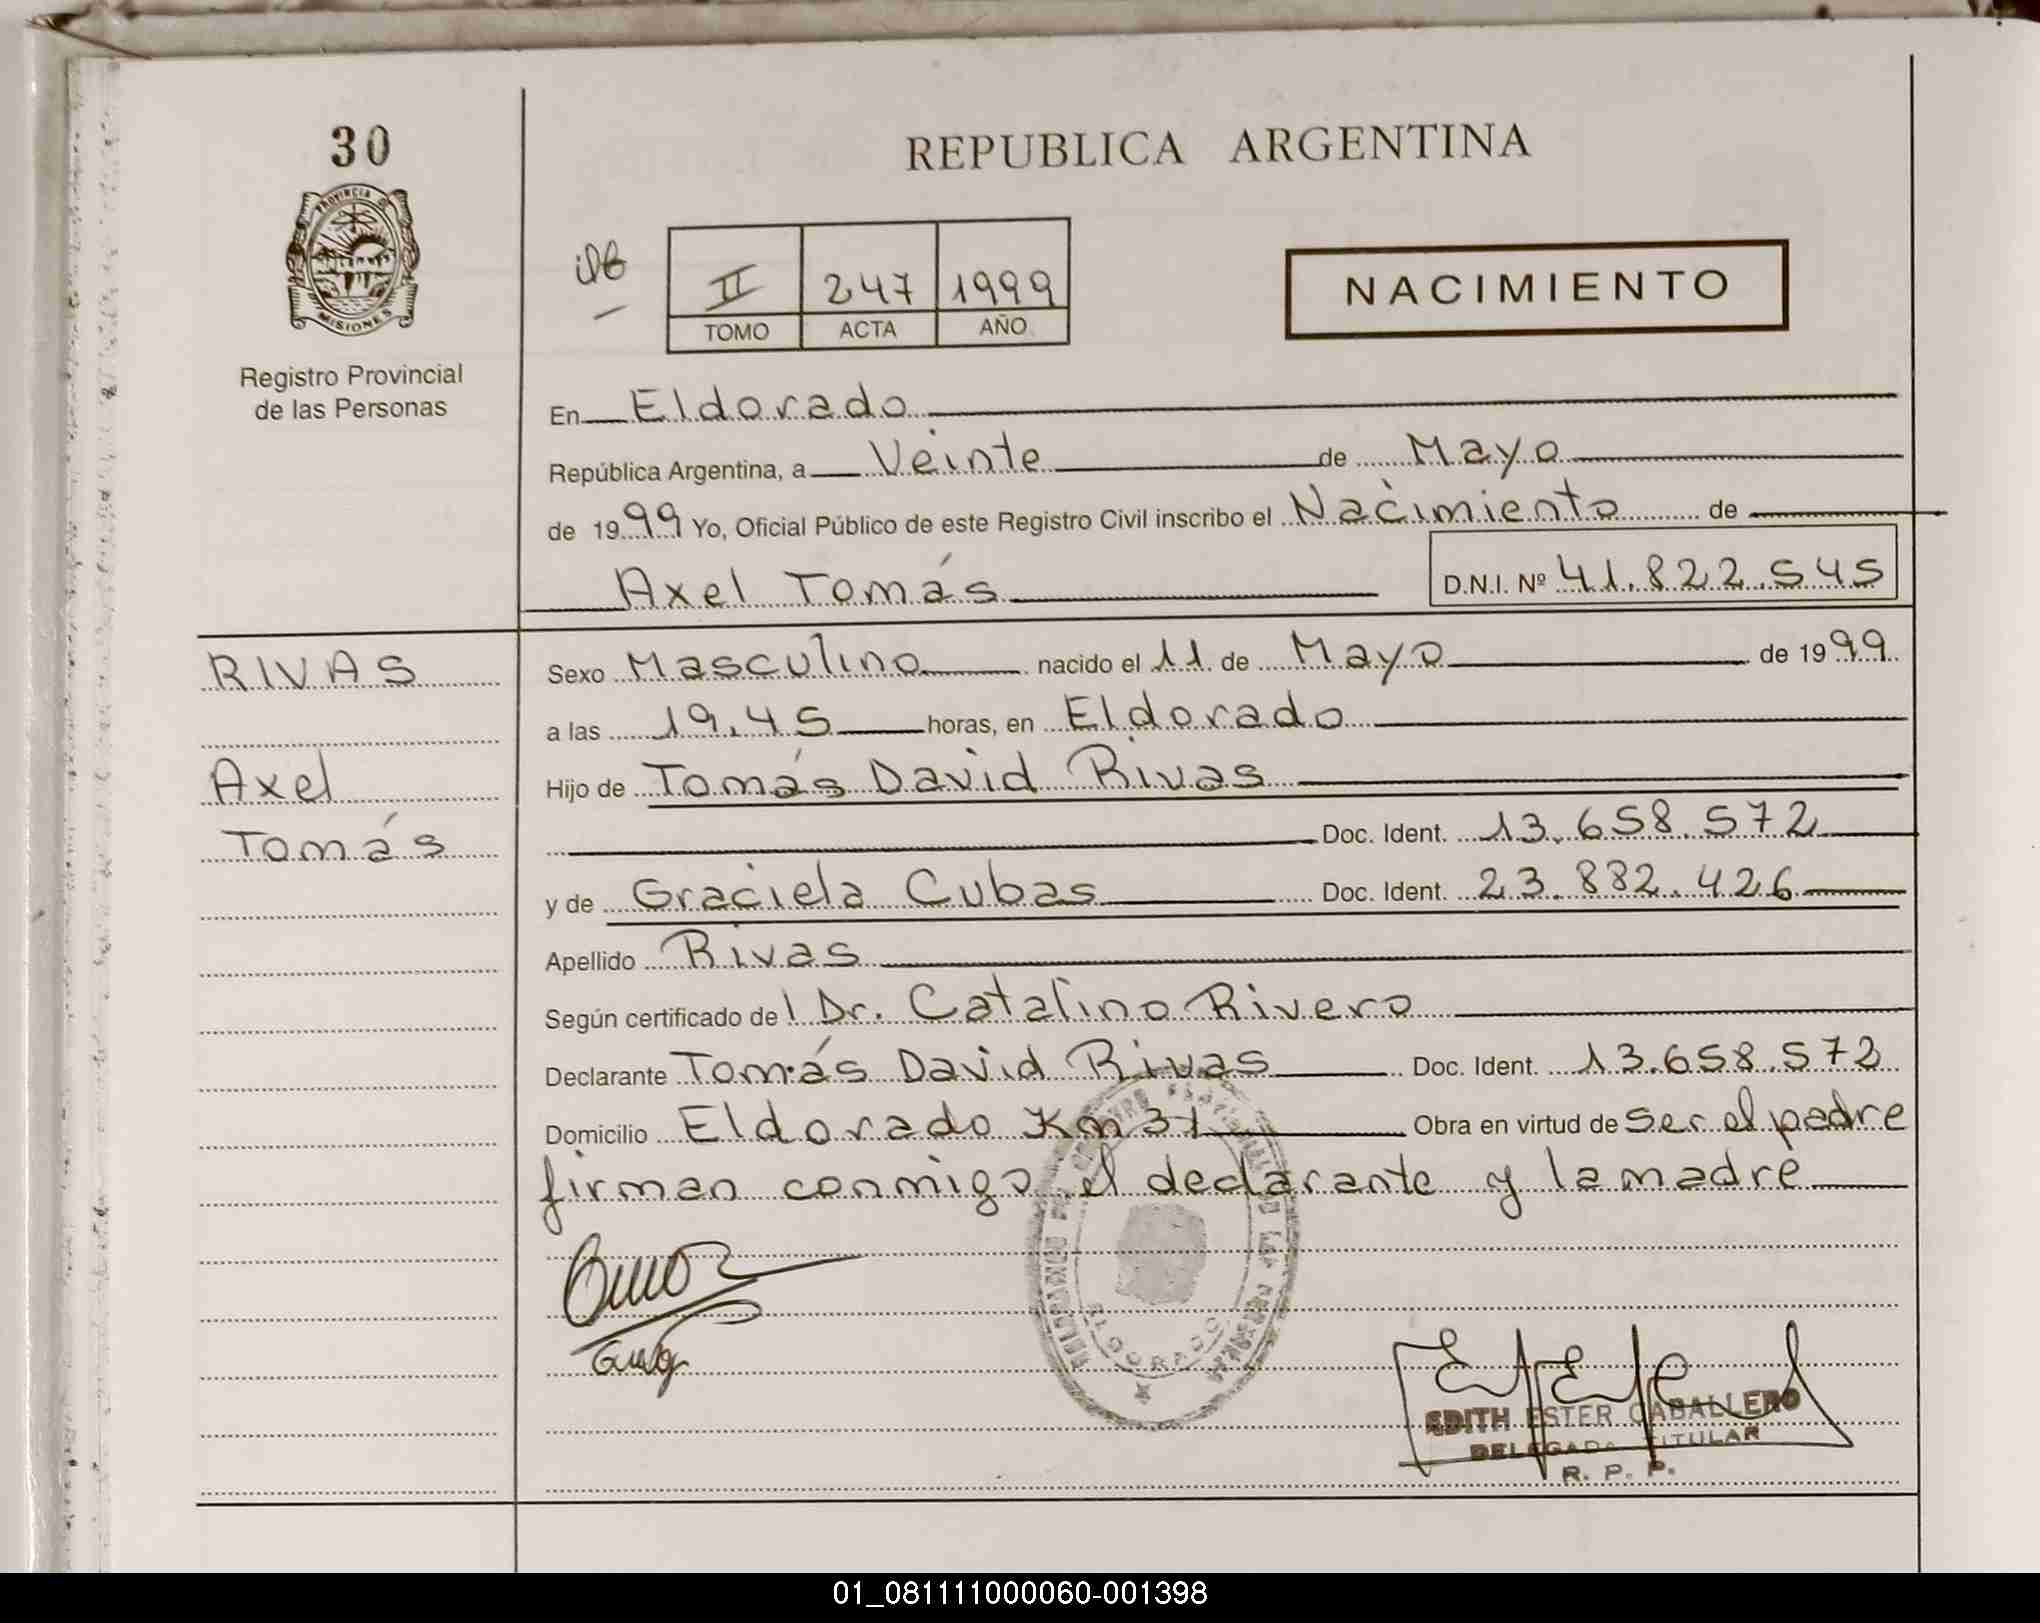 30
PROVINCIA DE
MISIONES
Registro Provincial
de las Personas
REPUBLICA ARGENTINA
II 247 1999
TOMO ACTA AÑO
NACIMIENTO
En Eldorado
República Argentina, a Veinte de Mayo
de 1999 Yo, Oficial Público de este Registro Civil inscribo el Nacimiento de
Axel Tomás D.N.I. Nº 41.822.545
RIVAS
Axel
Tomás
Sexo Masculino nacido el 11 de Mayo de 1999
a las 19,45 horas, en Eldorado
Hijo de Tomás David Rivas
Doc. Ident. 13.658.572
y de Graciela Cubas Doc. Ident. 23.882.426
Apellido Rivas
Según certificado del Dr. Catalino Rivero
Declarante Tomás David Rivas Doc. Ident. 13.658.572
Domicilio Eldorado Km 31 Obra en virtud de ser el padre
firman conmigo el declarante y la madre
ELDORADO
EDITH ESTER CABALLERO
DELEGADA TITULAR
R. P. P.
01_081111000060-001398